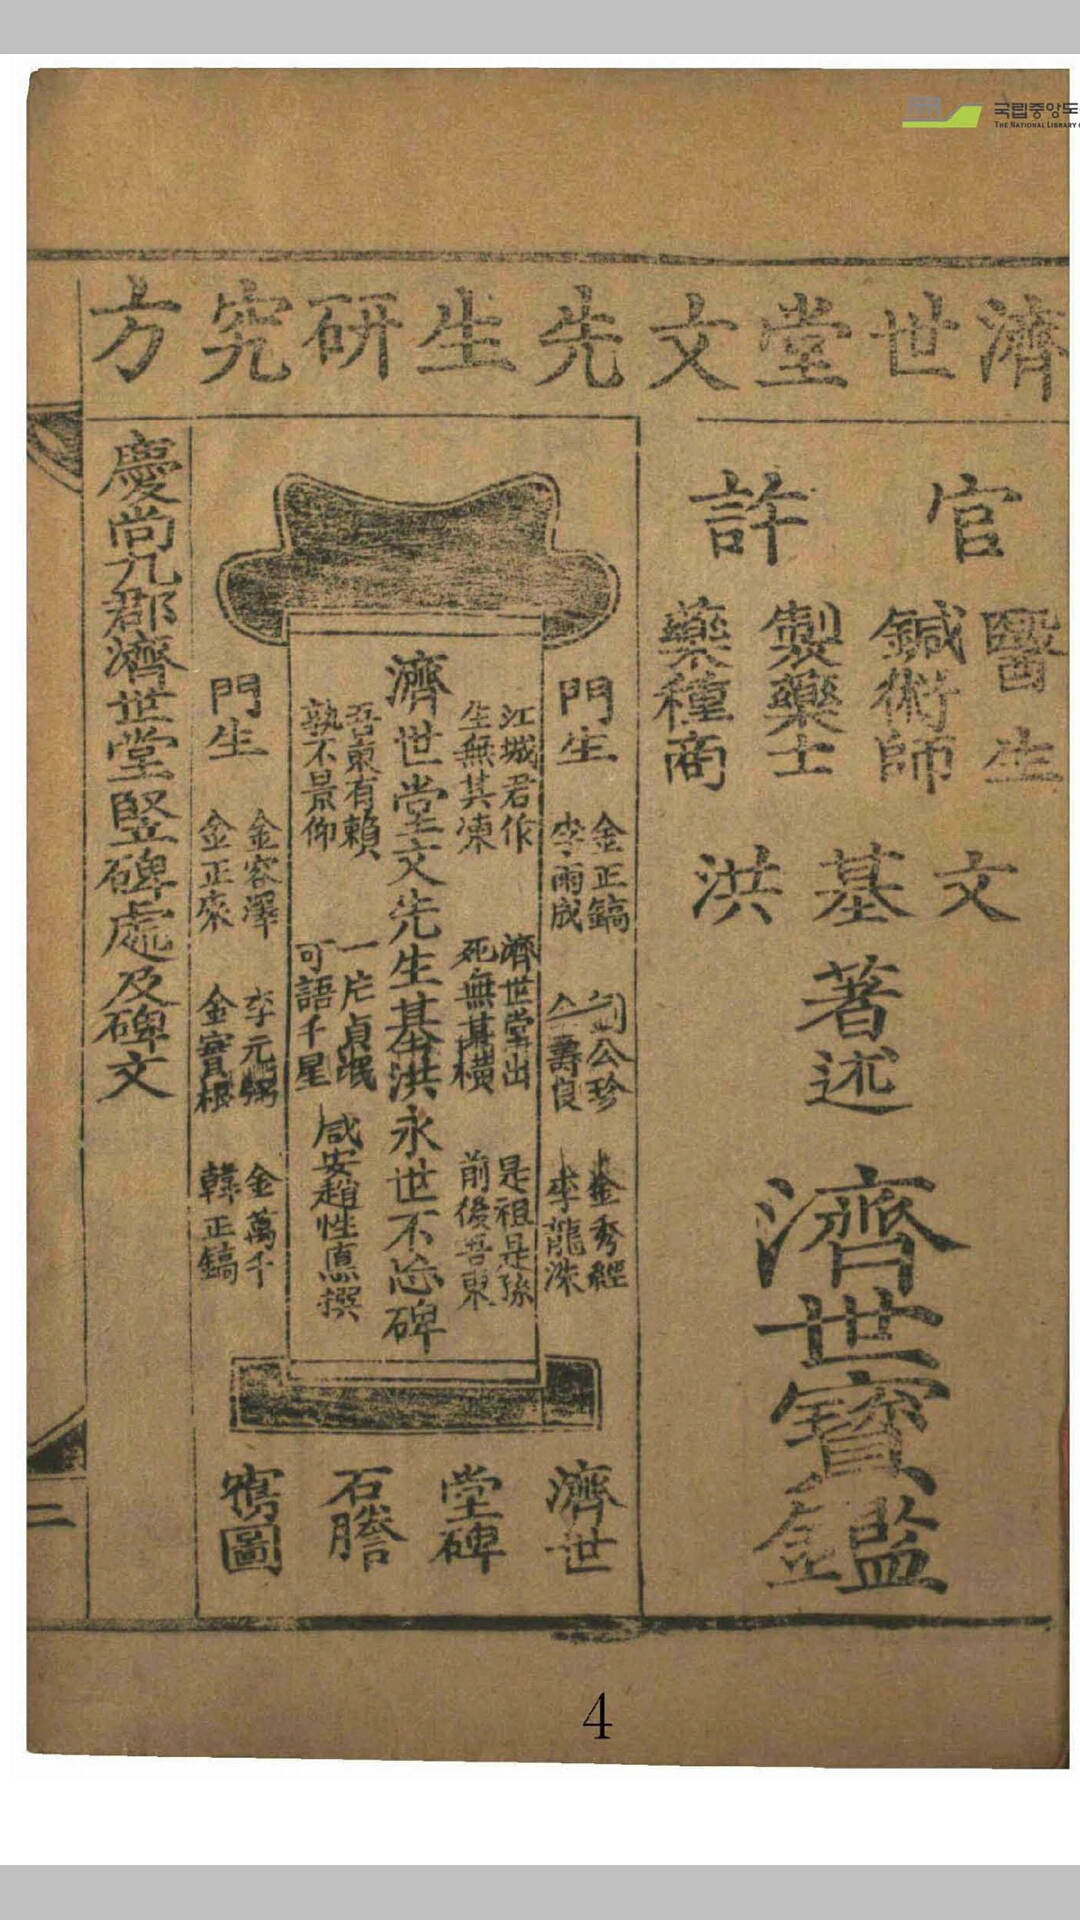 국립중앙도
THE NATIONAL LIBRARY
濟世堂文先生研究方
官許
醫生
鍼術師
製藥士
藥種商
文基洪
著述
濟世寶鑑
門生
金正鎬
李雨成
公珍
壽良
金秀經
李龍洙
江城君作
生無其凍
濟世堂出
死無其橫
是祖是孫
前後吾東
濟世堂文先生基洪永世不忘碑
吾東有賴
孰不景仰
一片貞珉
可語千星
咸安趙性惪撰
門生
金容澤
金正來
李元弼
金寶根
金萬千
韓正鎬
濟世
堂碑
石謄
寫圖
慶尚九郡濟世堂竪碑處及碑文
二
4